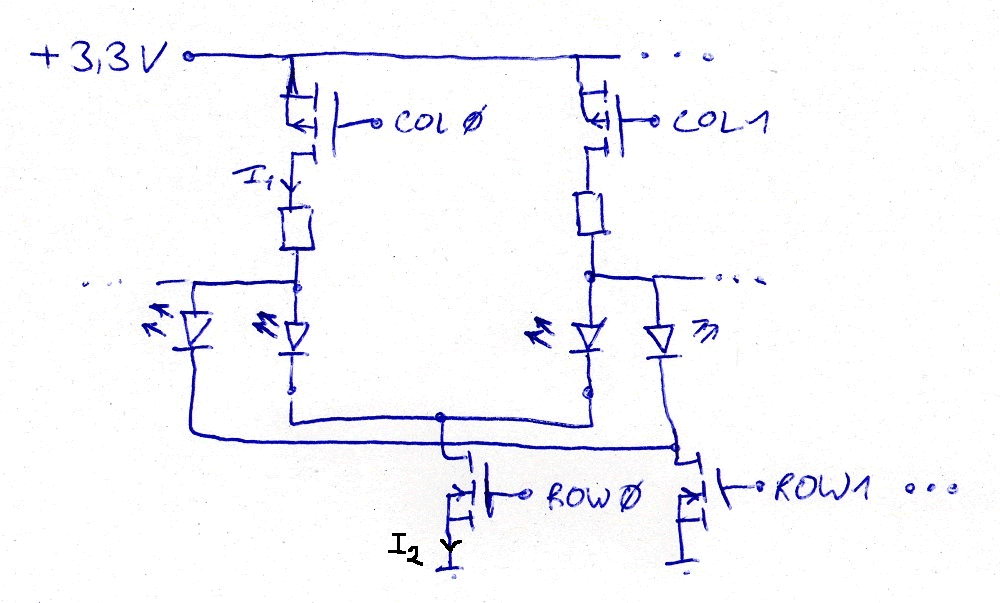 +3,3V ...
COLØ COL1
I1
... ...
ROWØ ROW1 ...
I2